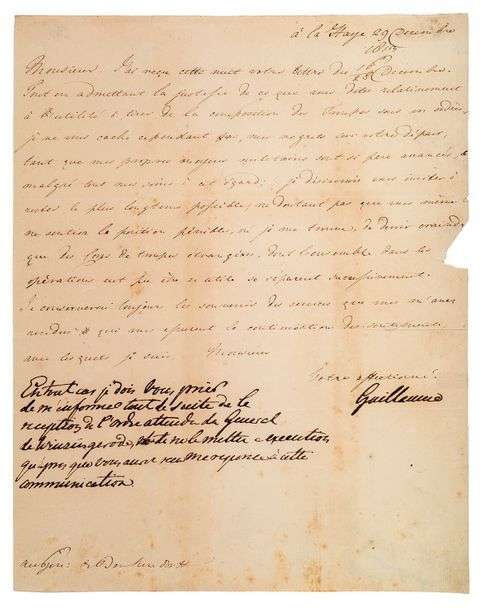 à la Haye 29 Decembre
1813
Monsieur. J'ai reçu cette nuit votre lettre du 16/28 Decembre.
Tout en admettant la justesse de ce que vous dites relativement
à l'utilité à tirer de la composition des troupes sous vos ordres
je ne vous cache cependant pas, mes regrets sur votre départ,
tant que mes propres moyens militaires sont si peu avancés,
malgré tous mes soins à cet égard; je désirerois vous inviter à
rester le plus longtems possible, ne doutant pas que vous même
ne sentiez la position pénible, où je me trouve, de devoir craindre
que des Corps de troupes étrangères, dont l'ensemble dans les
opérations eut pu être si utile se séparent successivement.
Je conserverai toujours le souvenir des services que vous m'avez
rendus & qui vous assurent la continuation des sentimens
avec lesquels je suis, Monsieur
Votre affectionné
Guillaume
En tout cas je dois Vous prier
de m'informer tout de suite de la
reception de l'ordre attendu du General
de Winzingerode, et de ne le mettre a execution
qu'apres que Vous aurez reçu ma reponse à cette
communication